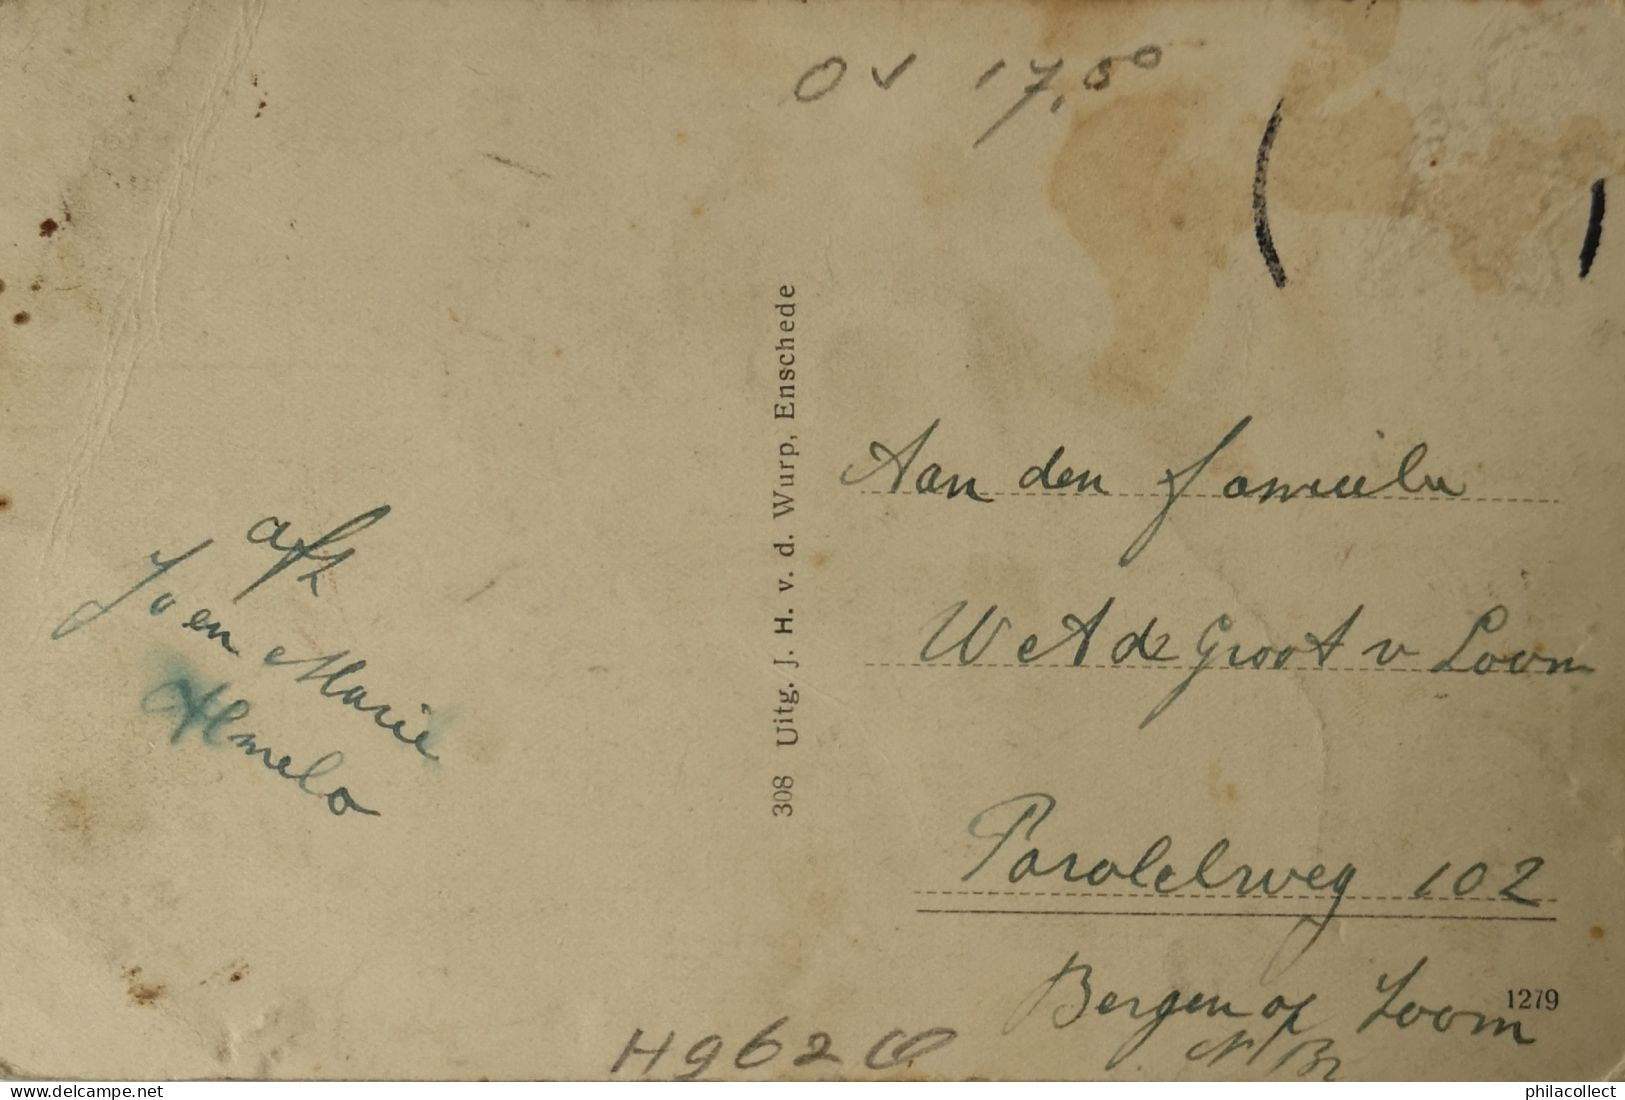 OV 17,50
afz
Jo en Marie
Almelo
308 Uitg. J. H. v. d. Wurp, Enschede
Aan den familie
W et A de Groot v Loon
Parallelweg 102
Bergen op Zoom
N. Br
1279
H962
philacollect